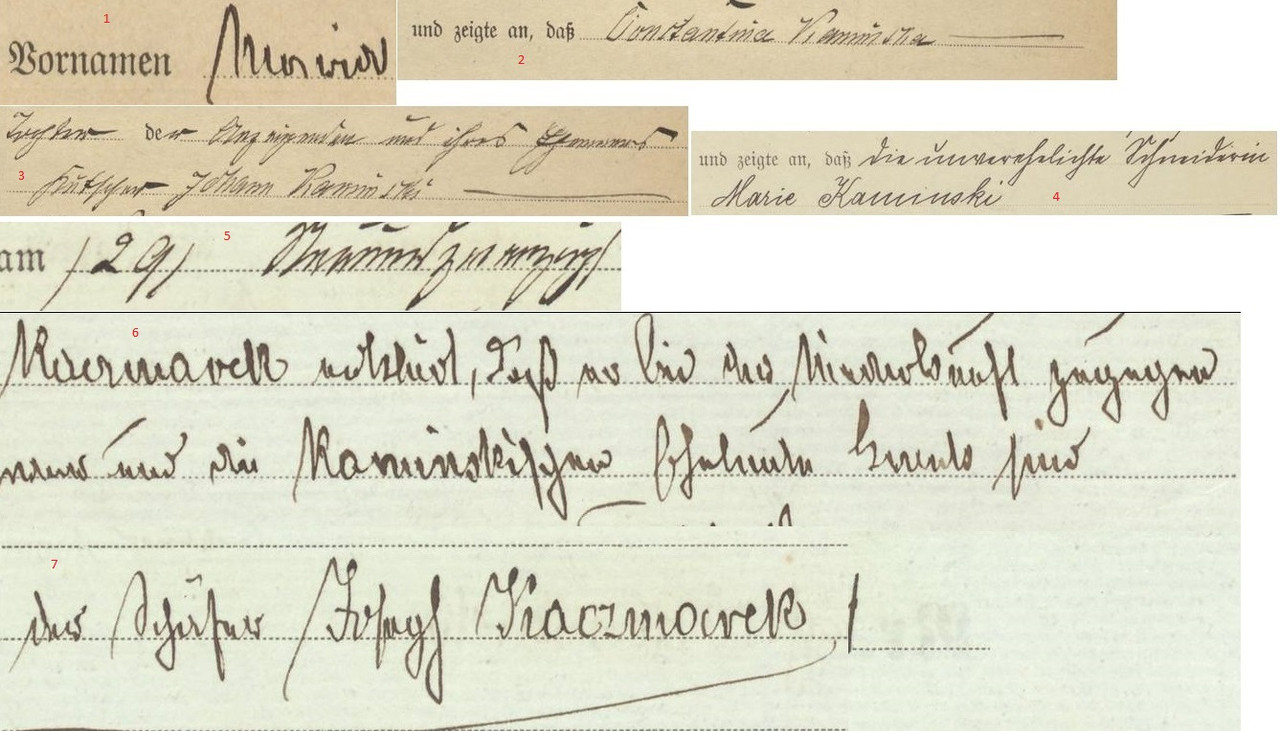 1
Vornamen Marian
und zeigte an, daß Constantina Kaminska
2
Tochter der Anzeigenden und ihres Ehemannes
3 Kutscher Johann Kaminski
und zeigte an, daß die unverehelichte Schneiderin
Marie Kaminski 4
5
am (29) Neunundzwanzig
6
Kaczmarek erklärt, daß er bei der Niederkunft zugegen
und die Kaminskischen Eheleute sind
7
der Schäfer Joseph Kaczmarek